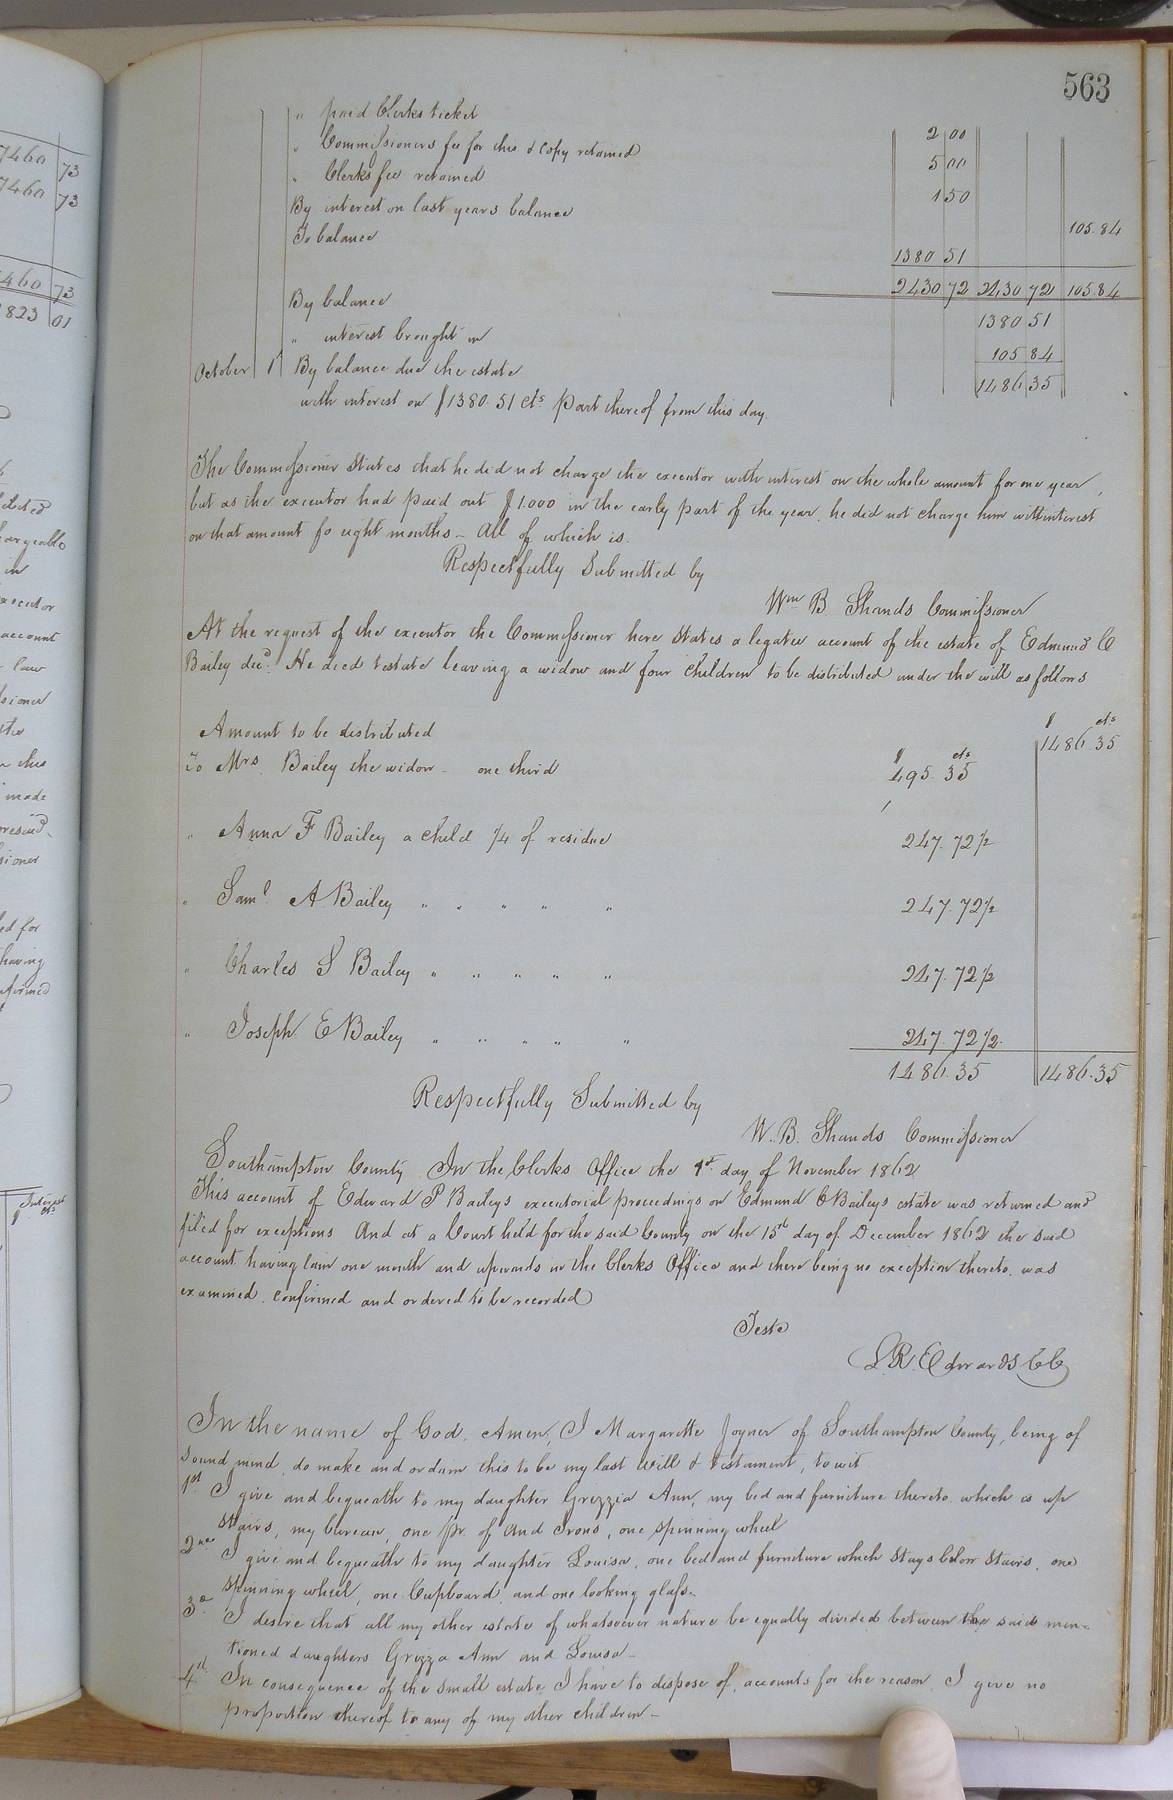 563
" paid Clerks ticket 2 00
" Commissioners fee for this & copy retained 5 00
" Clerks fee retained 1 50
By interest on last years balance 105.84
To balance 1380 51
2430 72 2430 72 105.84
By balance 1380 51
" interest brought in 105 84
October 1 By balance due the estate 1486 35
with interest on $1380.51 cts part thereof from this day.
The Commissioner States that he did not charge the executor with interest on the whole amount for one year,
but as the executor had paid out $1.000 in the early part of the year, he did not charge him with interest
on that amount fo eight months – All of which is.
Respectfully Submitted by
Wm B Shands Commissioner
At the request of the executor the Commissioner here States a legatee account of the estate of Edmund C
Bailey decd. He died testate leaving a widow and four children to be distributed under the will as follows
$ cts
Amount to be distributed 1486 35
$ cts
To Mrs. Bailey the widow – one third 495.35
" Anna F Bailey a child 1/4 of residue 247.72 1/2
" Saml A Bailey " " " " " 247.72 1/2
" Charles S Bailey " " " " " 247.72 1/2
" Joseph E Bailey " " " " " 247.72 1/2
1486.35 1486.35
Respectfully Submitted by
W. B. Shands Commissioner
Southampton County In the Clerks Office the 1st day of November 1862
This account of Edward P Baileys executorial proceedings on Edmund C Baileys estate was returned and
filed for exceptions And at a Court held for the said County on the 15th day of December 1862 the said
account having lain one month and upwards in the Clerks Office and there being no exception thereto. was
examined. confirmed and ordered to be recorded
Teste
L. R. Edwards CC
In the name of God. Amen, I Margarette Joyner of Southampton County, being of
Sound mind, do make and ordain this to be my last Will & testament, to wit
1st I give and bequeath to my daughter Grizzia Ann, my bed and furniture thereto which is up
Stairs, my bureau, one pr. of And Irons, one spinning wheel
2nd I give and bequeath to my daughter Louisa, one bed and furniture which Stays below Stairs, one
Spinning wheel, one Cupboard, and one looking glass.
3d I desire that all my other estate of whatsoever nature be equally divided between the said men=
tioned daughters Grizza Ann and Louisa –
4th In consequence of the small estate I have to dispose of, accounts for the reason, I give no
proportion thereof to any of my other children –
7460 73
7460 73
460 73
823 01
account
law
this
made
ed for
having
Interest
$ cts